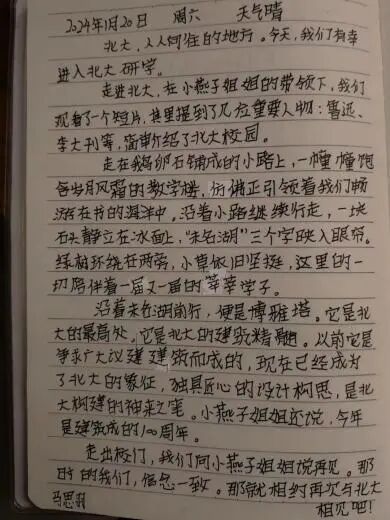 2024年1月20日 周六 天气晴
北大，人人向往的地方。今天，我们有幸
进入北大研学。
走进北大，在小燕子姐姐的带领下，我们
观看了一个短片，其里提到了几位重要人物：鲁迅、
李大钊等，简单介绍了北大校园。
走在鹅卵石铺成的小路上，一幢幢饱
含岁月风霜的教学楼，仿佛正引领着我们畅
游在书的海洋中。沿着小路继续行走，一块
石头静立在冰面上，“未名湖”三个字映入眼帘。
绿树环绕在两旁，小草依旧坚挺，这里的一
切陪伴着一届又一届的莘莘学子。
沿着未名湖前行，便是博雅塔。它是北
大的最高处，它是北大的建筑精髓。以前它是
争求广大议建建筑而成的，现在已经成为
了北大的象征，独具匠心的设计构思，是北
大构建的神来之笔。小燕子姐姐还说，今年
是建筑成的100周年。
走出校门，我们同小燕子姐姐说再见。那
时的我们，信念一致。那就相约再次与北大
相见吧！